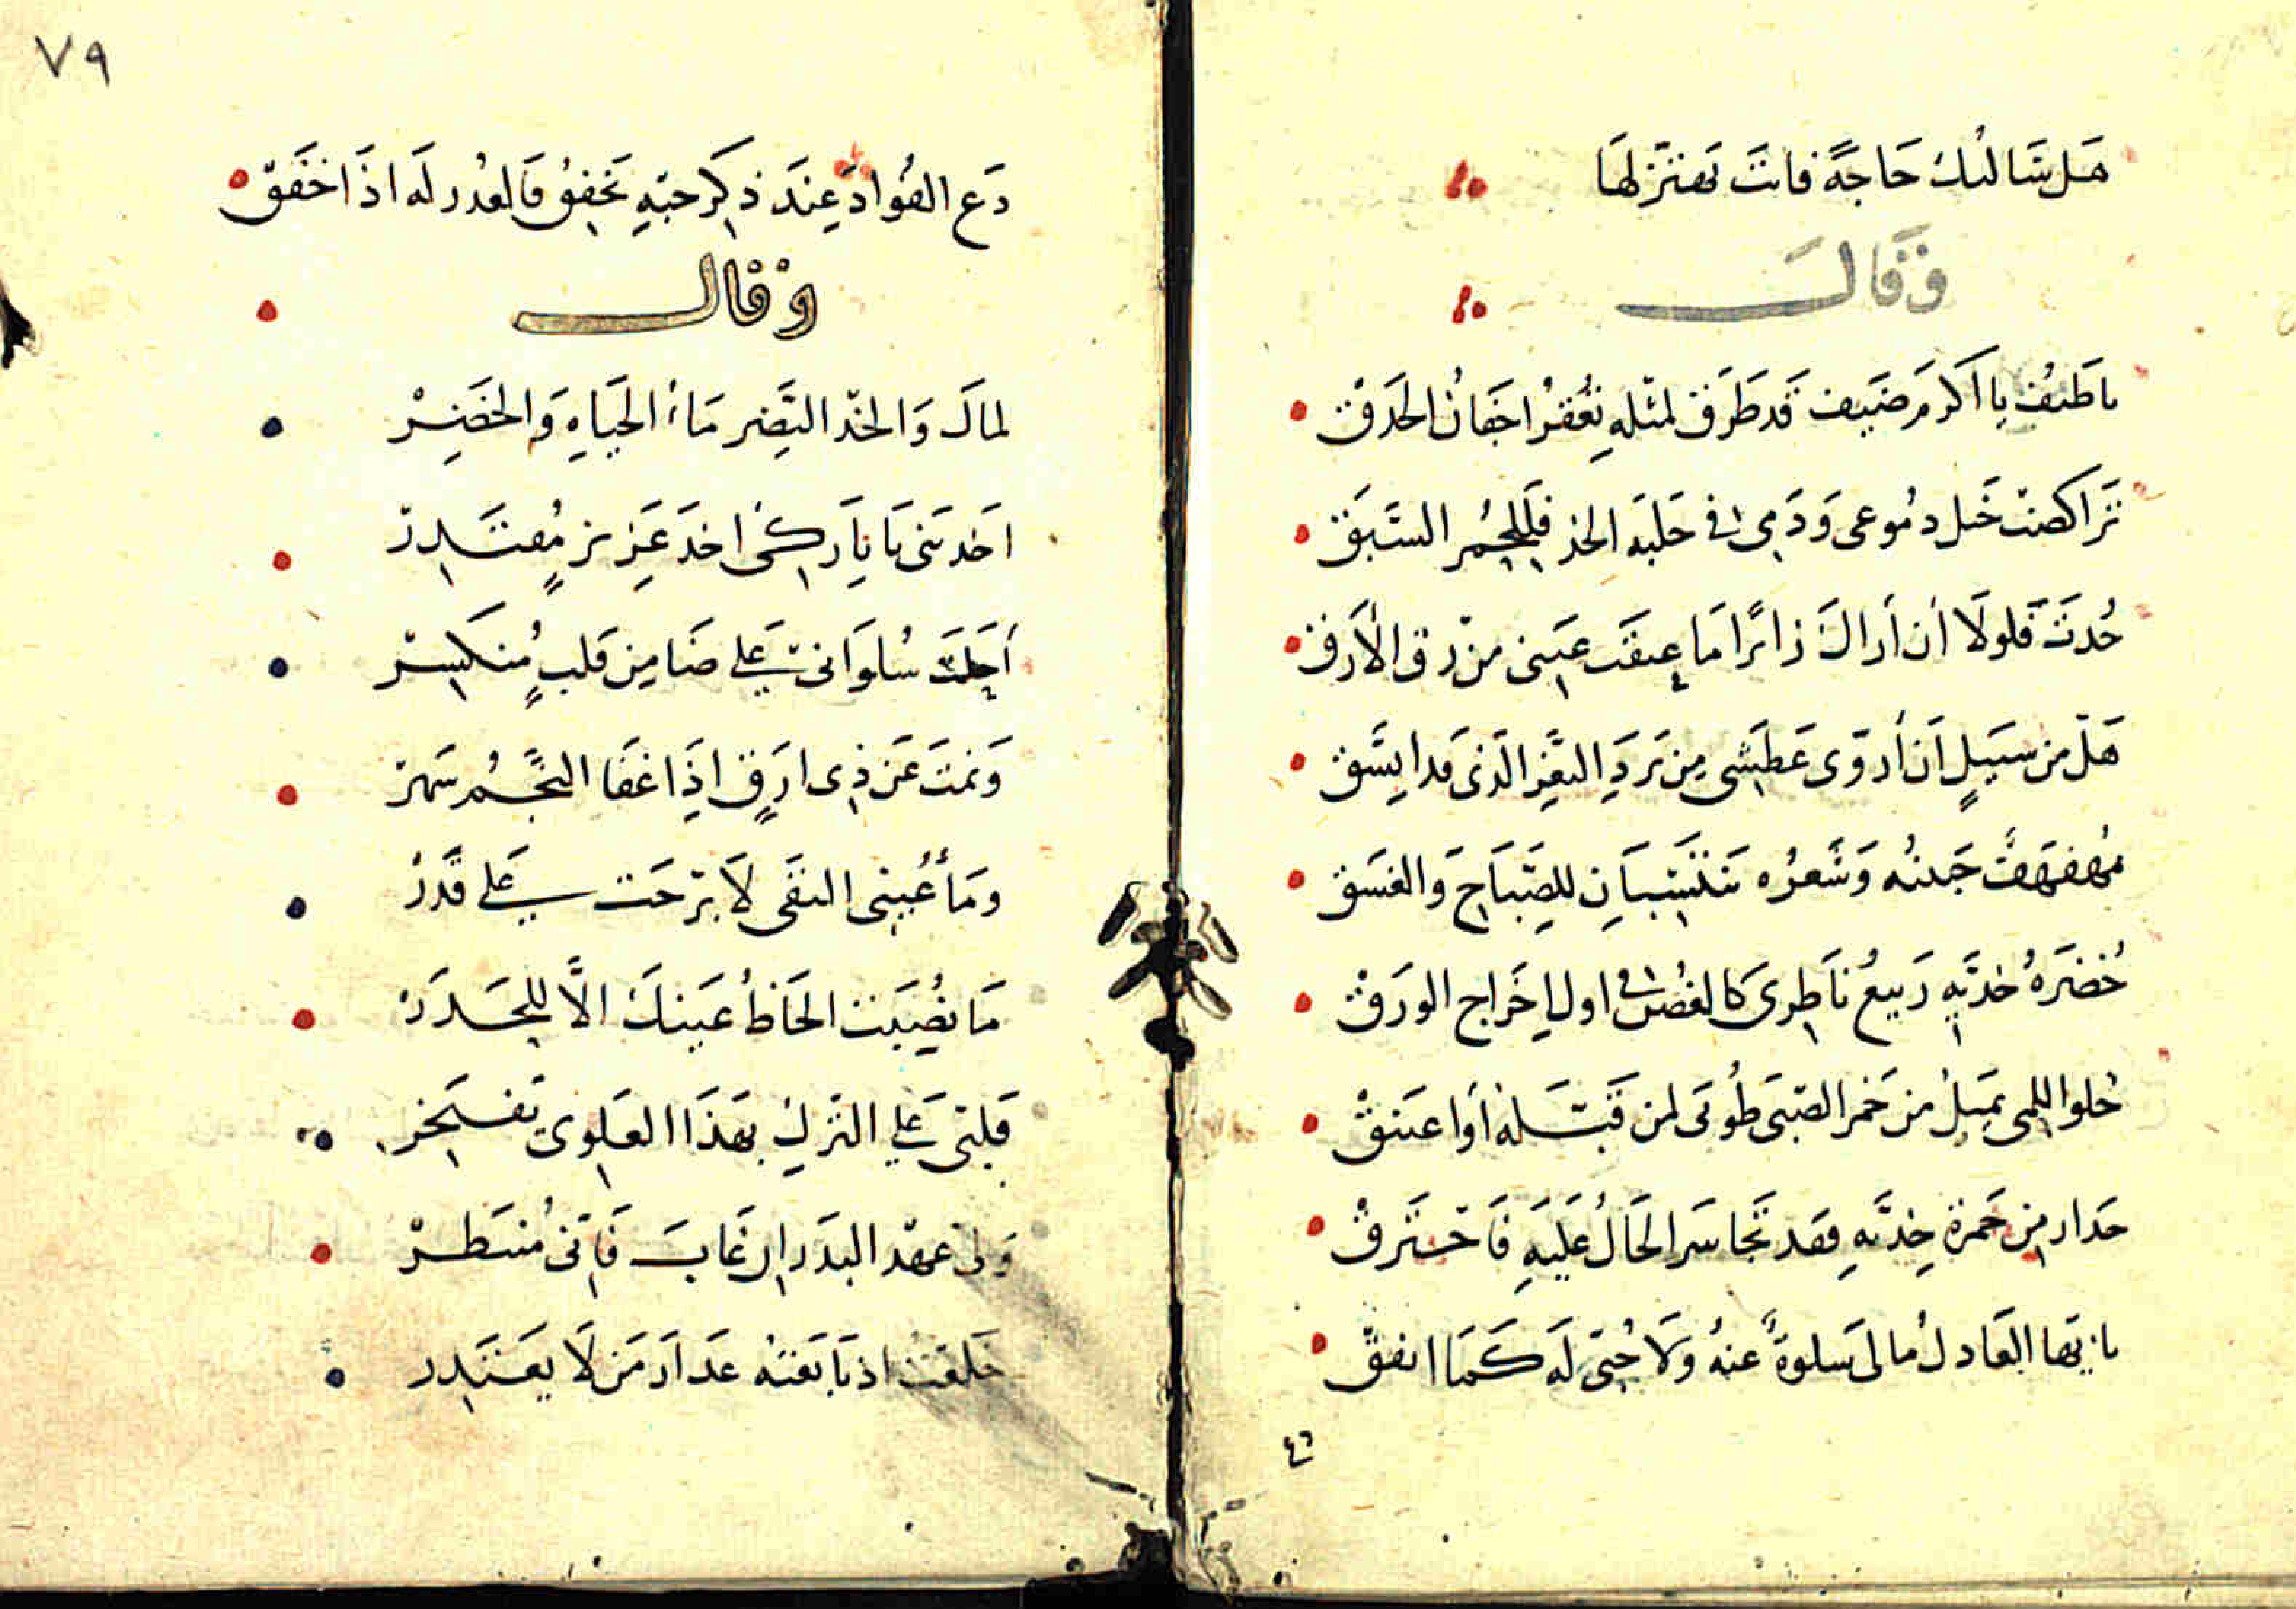 هَل سَالتُكَ حَاجَةً فانتَ تَعتَزّ لهَا
وَقَالَ
يا طَيفُ يا اكرمَ ضَيف قَد طَرَق لمثلهِ تُعقرُ اجفانُ الحَدَقْ
تَراكضت خَيل دمُوعى وَدَمِى فى حَلبَة الخد فَلِلجُمر السَّبَق
جُدتَ فَلولَا أن أراكَ زائرًا مَا عَلِقَت عَينى من رق الأرَق
هَل من سَبيلٍ أن أروَى عَطَشِى مِن بَردِ الثغر الّذى قَد اتسَّق
مُهَفهَفٌ جَبينُه وَشَعرُه يَنتَسِبَانِ للصَّبَاحِ وَالغَسَق
خُضرَةُ خدّيهِ رَبيعُ نَاظِرِى كالغُصن فى اول اِخرَاج الورَقْ
حُلو اللمى يَميلُ من خمر الصّبَى طُوبَى لمن قَبّلهُ أو اعتنقْ
حَذارِ مِن جَمرَةِ خدّيهِ فقد تجَاسَر الخَالُ عَلَيهِ فَاحتَرقْ
يا ايّها العَاذلُ مَا لى سَلوَةٌ عنهُ وَلَا حُبّى لَه كَمَا اتفقْ
٤٦
٧٩
دَع الفُؤادَ عِندَ ذِكرِ حبّهِ يَخفِقُ فَالعُذر لَه اذَا خَفَقْ
وَقَالَ
لماكَ وَالخدّ النّضِر مَاءُ الحَيَاةِ وَالخَضِرْ
اخَذتَنى يَا تَارِكِى اخذَ عَزيزٍ مُقتَدِرْ
أحَلتَ سُلوَانى عَلى ضَامِن قَلبٍ مُنكسِرْ
وَنمتَ عَن ذِى ارَقٍ اذَا غفَا النّجمُ سَهرْ
ومَا عُيينى النقى لاَ برحت عَلى قَدَرْ
مَا نُصِبَت الحَاظُ عَينيكَ الاَّ للحَذَرْ
قلبى عَلى التركِ بهَذَا العَلوى يَفتخِر
ولى عهد البدَر اِن غَابَ فَاِنّى مُنتَظِرْ
خلعتُ اذ بَايَعتُه عذار مَن لَا يعتَذِر